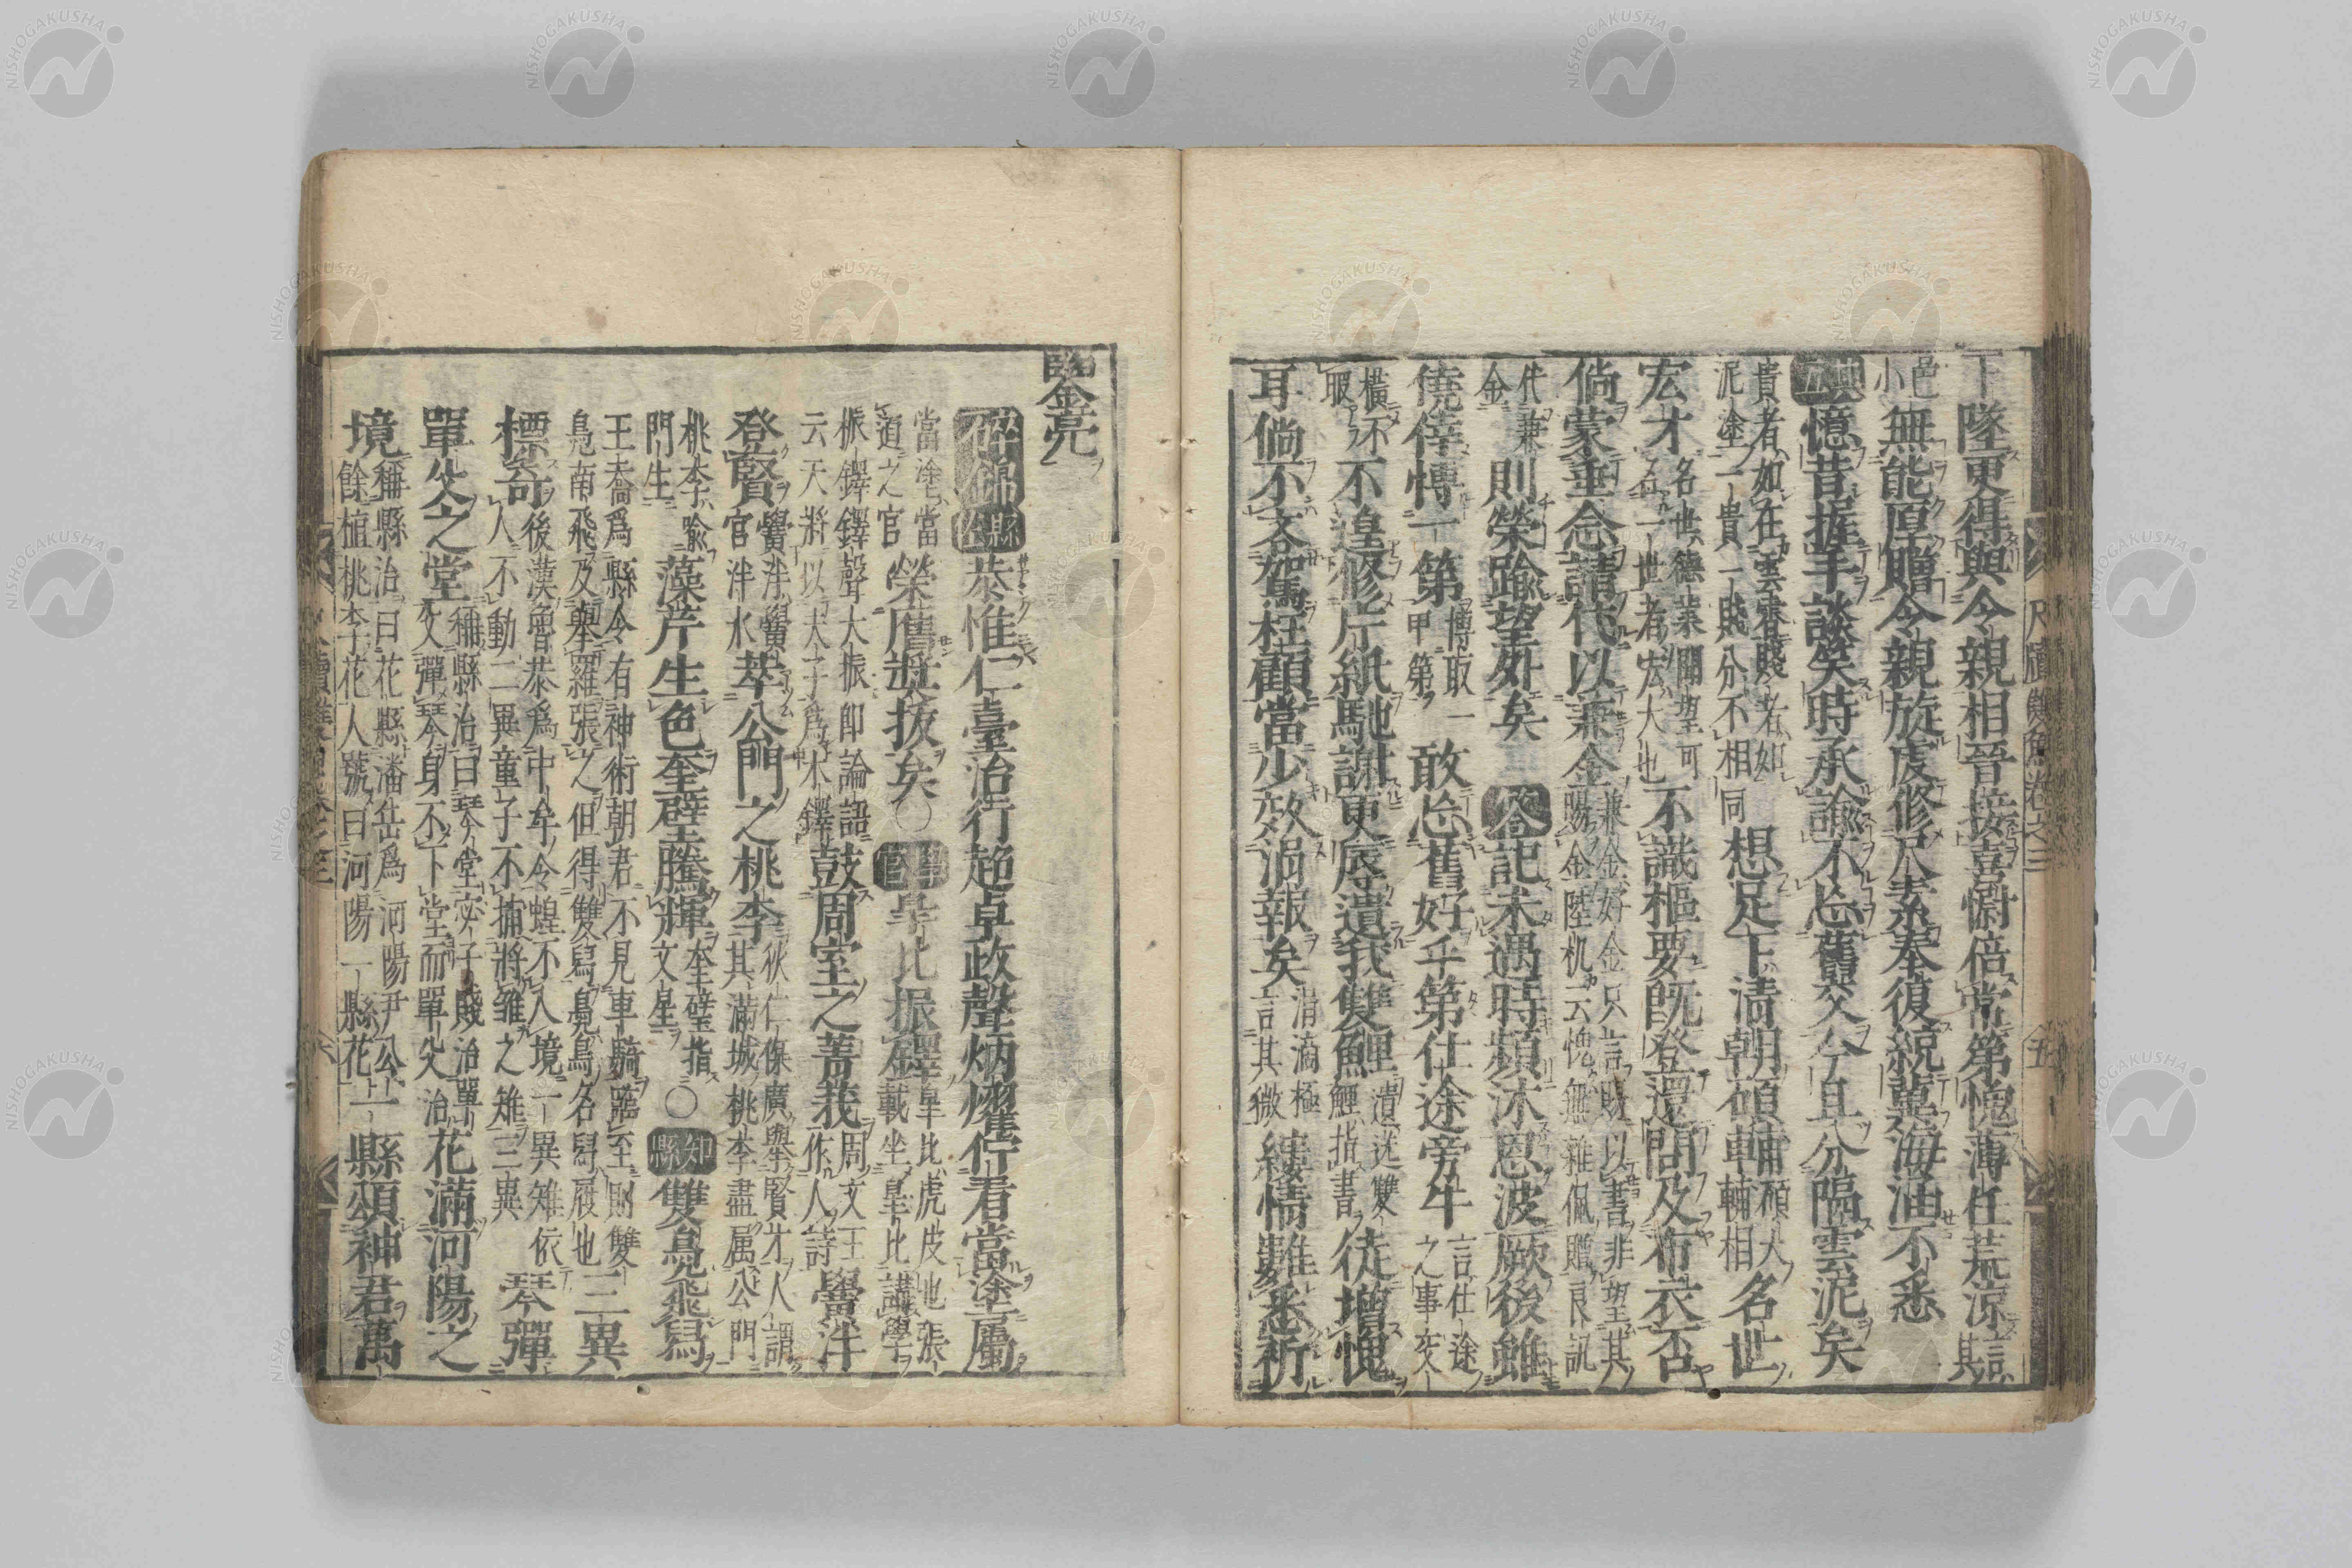 下墜更得與令親相晉接喜慰倍常第愧薄任荒凉言其
邑小無能厚贈令親旋虔修尺素奉復統冀海涵不悉
憶昔握手談笑時承諭不忘舊交今且分隔雲泥矣
貴者如在雲霄賤者如泥塗一貴一賤分不相同想足下清朝碩輔碩大輔相名世
宏才名世德業聞望可在一世者宏大也不識樞要既登還問及布衣否
倘蒙垂念請代以兼金兼金好金只言財以書非望其賜金陸机云愧無雜佩贈良訊
代兼金則榮踰望外矣答記未遇時頻沐恩波厥後雖
僥倖慱一第慱取一甲第敢忘舊好乎第仕途旁午言仕途之事交
橫不暇不遑修片紙馳謝更辱遺我雙鯉漬送雙鯉指書徒增愧
耳倘不吝駕枉顧當少效涓報矣涓滴極言其微縷情難悉祈
尺牘雙魚卷之三
五
鑒亮
縣恭惟仁臺治行超卓政聲炳燿佇看當塗屬
當塗當道之官榮膺奬拔矣○官皐比振鐸皐比虎皮也張載坐皐比講學
振鐸鐸聲大振即論語云天將以夫子爲木鐸鼓周室之菁莪周文王作人詩黌泮
登賢黌泮黌官泮水萃公門之桃李狄仁傑廣舉賢才人謂其滿城桃李盡属公門
桃李喻門生藻芹生色奎壁騰輝奎璧指文星○知縣雙鳧飛舄
王喬爲縣令有神術朝君不見車騎臨至則雙鳧南飛及舉羅張之但得雙舄鳧鳥名舄履也三異
標奇後漢魯恭爲中牟令蝗不入境一異雉依人不動二異童子不捕將雛之雉三異琴彈
單父之堂稱縣治曰琴堂宓子賤治單父彈琴身不下堂而單父治花滿河陽之
境稱縣治曰花縣潘岳爲河陽尹公餘植桃李花人號曰河陽一縣花一縣頌神君萬